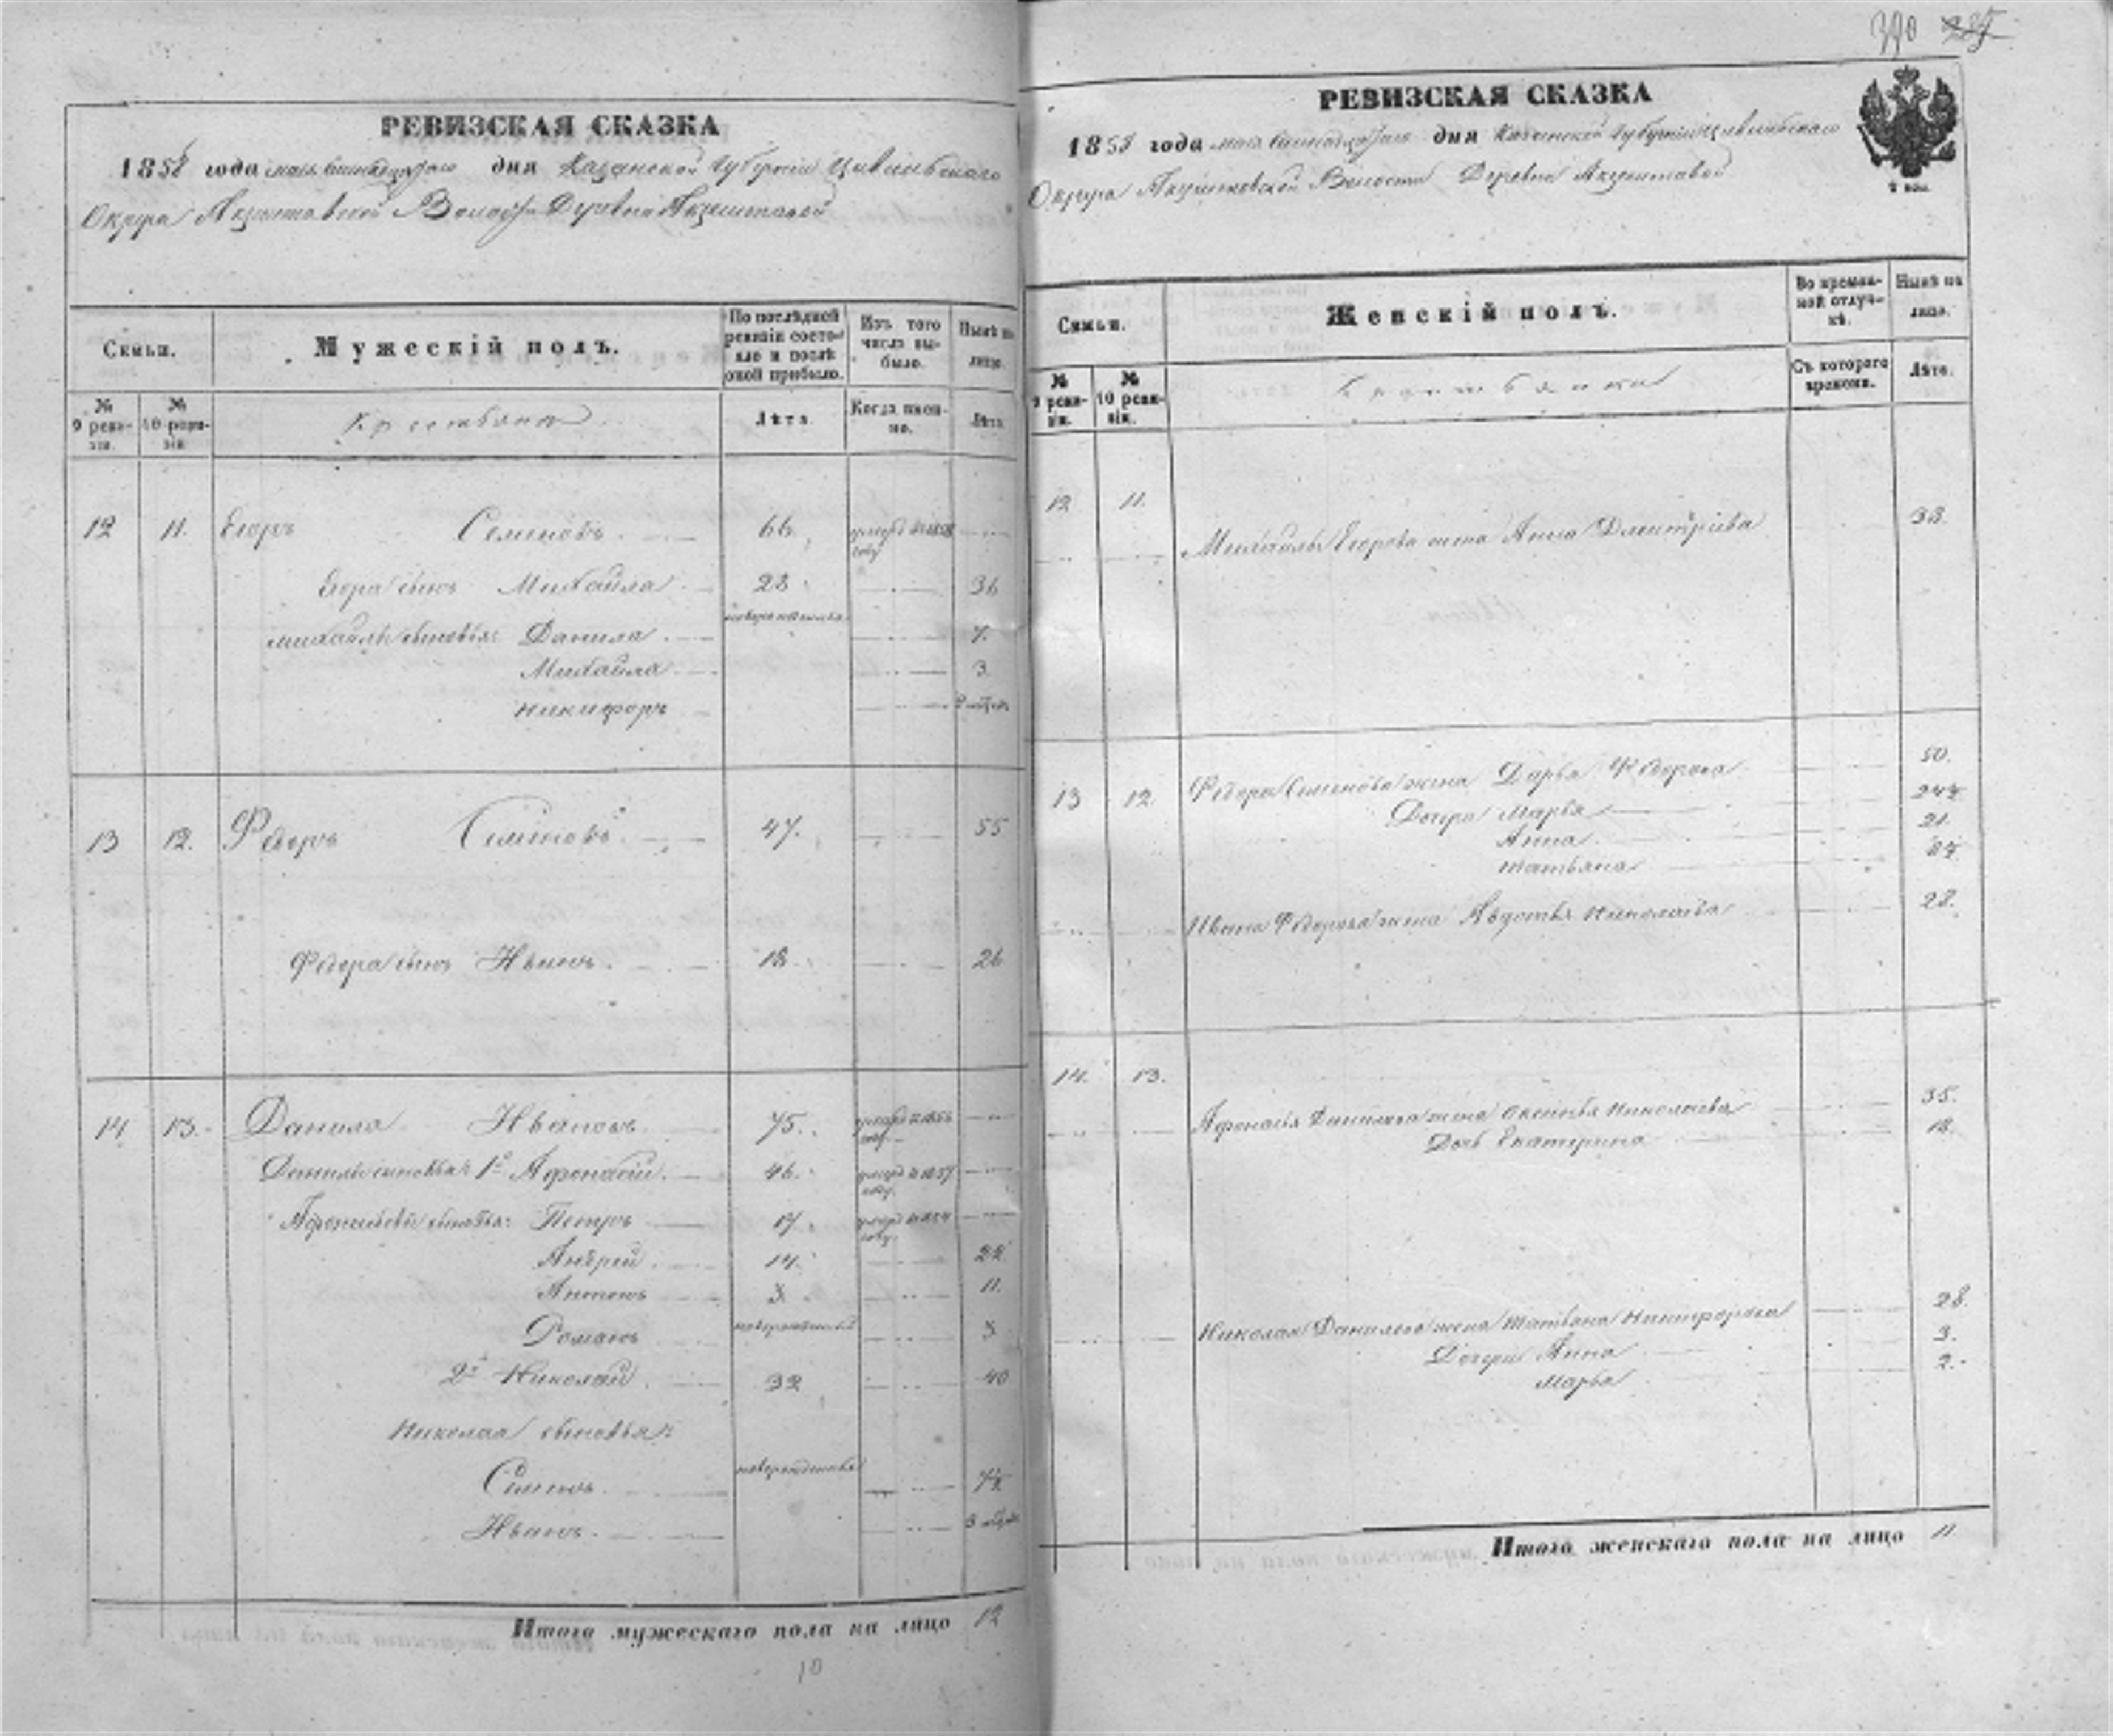 РЕВИЗСКАЯ СКАЗКА
1858 года мая дня Казанской Губернiи Цивильскаго
Округа Акзигитовской Волости Деревни Акзигитовой
Семьи.
Мужескiй полъ.
По послѣдней ревизiи состояло и послѣ оной прибыло.
Изъ того числа выбыло.
Нынѣ на лицо.
№ 9 ревизiи.
№ 10 ревизiи.
Крестьяне
Лѣта.
Когда именно.
Лѣта.
12 11. Егоръ Семеновъ 66.
Егора сынъ Михайла 28 36
новорожденные
Михайлы сыновья: Данила 7.
Михайла 3.
Никифоръ
13 12. Ѳедоръ Семеновъ 47. 55
Ѳедора сынъ Иванъ 18. 26
14 13. Данила Ивановъ 75.
Данилы сыновья: 1й Афонасiй 46.
Афонасьевы сыновья: Петръ 17
Андрей 14. 22
Антонъ 3 11.
Романъ новорожденный 3
2й Николай 32 40
Николая сыновья:
Семенъ новорожденные
Иванъ
Итого мужескаго пола на лицо 12
10
390
РЕВИЗСКАЯ СКАЗКА
1858 года мая дня Казанской Губернiи Цивильскаго
Округа Акзигитовской Волости Деревни Акзигитовой
Семьи.
Женскiй полъ.
Во временной отлучкѣ.
Нынѣ на лицо.
№ 9 ревизiи.
№ 10 ревизiи.
Крестьянки
Съ котораго времени.
Лѣта.
12 11.
Михайлы Егорова жена Анна Дмитрiева 33.
13 12. Ѳедора Семенова жена Дарья Ѳедорова 50.
Дочери Марья
Анна 21.
Татьяна
Ивана Ѳедорова жена Авдотья Николаева 28.
14. 13.
Афонасья Данилова жена Оксинья Николаева 35.
Дочь Екатерина 12.
Николая Данилова жена Татьяна Никифорова 28.
Дочери Анна 3.
Марья 2.
Итого женскаго пола на лицо 11